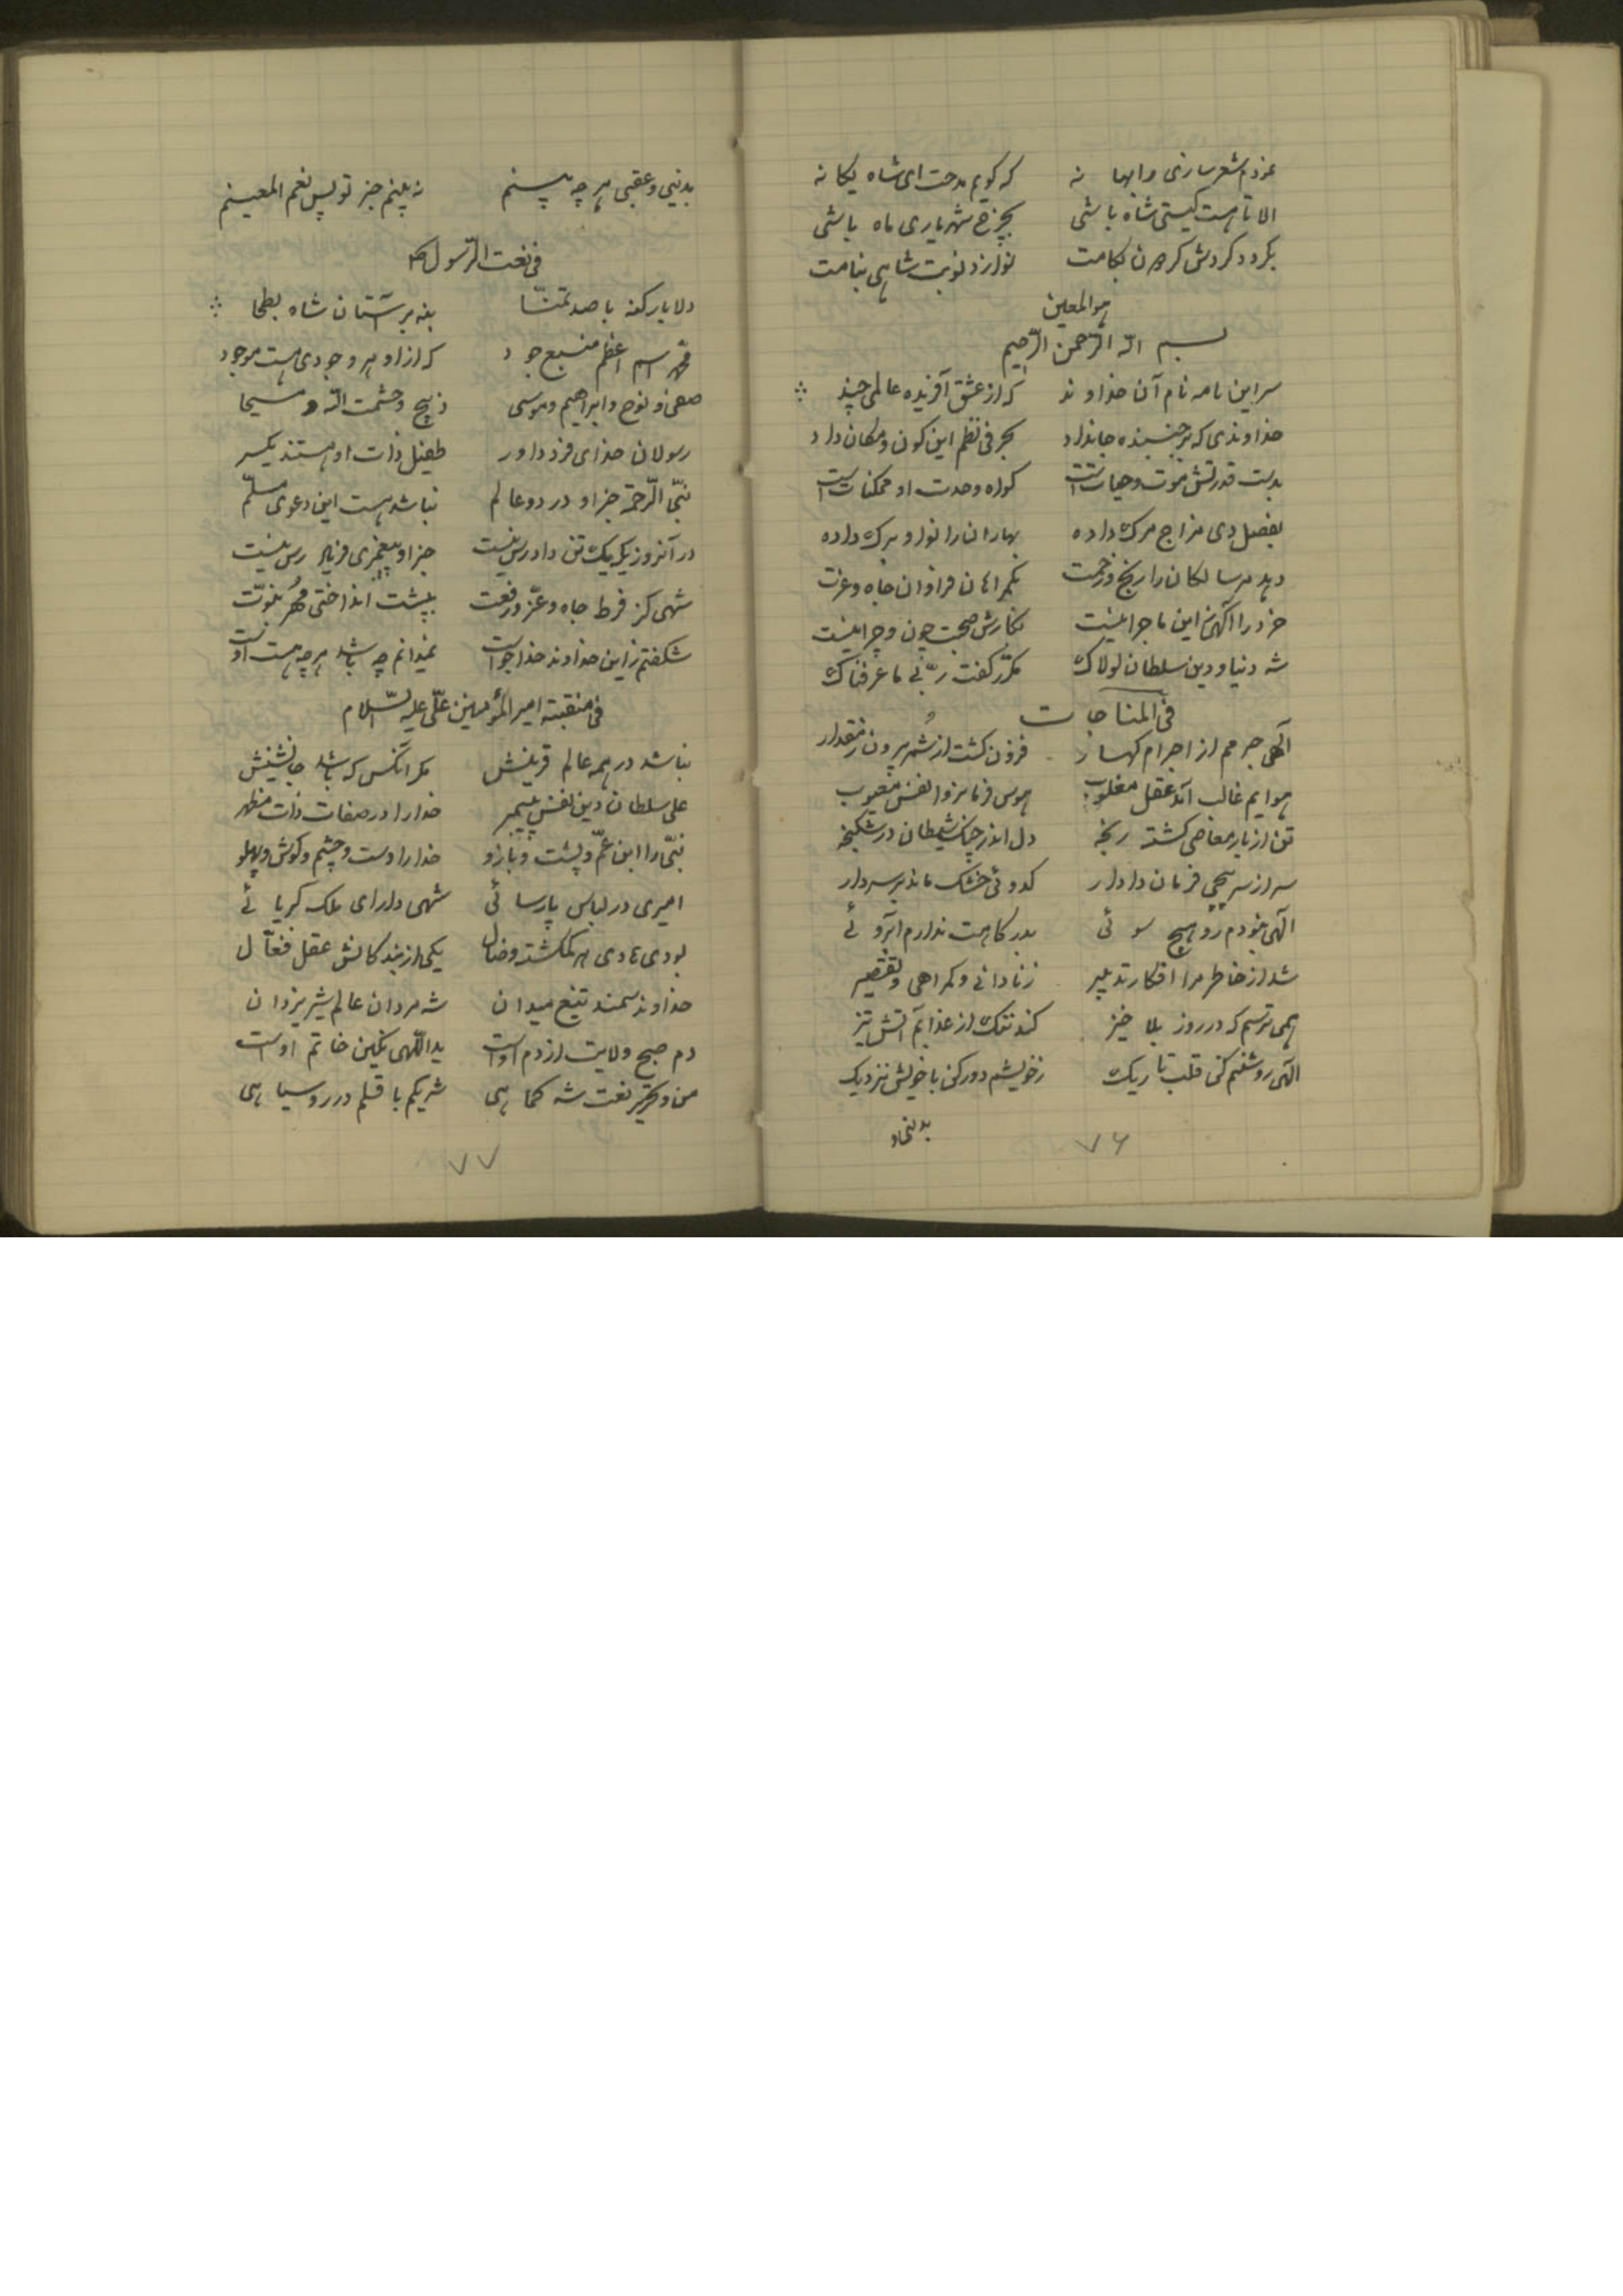 نمودم شعر سازی را بهانه که کویم مدحت ای شاه یکانه
الا تا هست کیتی شاه باشی بچرخ شهریاری ماه باشی
بکردد کردش کردون بکامت نوازد نوبت شاهی بنامت
هوالمعین
بسم الله الرّحمن الرّحیم
سر این نامه نام آن خداوند که از عشق آفریده عالمی چند
خداوندی که هر جنبنده جاندارد بحرفی نظم این کون و مکان دارد
بدست قدرتش موت و حیاتست کواه وحدت او ممکناتست
بفصل دی مزاج مرک داده بهاران را نوا و برک داده
دهد مر سالکان را رنج و زحمت بکمراهان فراوان جاه و عزت
خرد را آکهی زین ماجرا نیست نکارش صحبت چون و چرا نیست
شه دنیا و دین سلطان لولاک مکرّر کفت ربّی ما عرفناک
فی المناجات
آلهی جرمم از اجرام کهسار فزون کشت از شُمر بیرون ز مقدار
هوایم غالب آمد عقل مغلوب هوس فرمانروا نفس معیوب
تن از بار معاصی کشته رنجه دل اندر چنک شیطان در شکنجه
سر از سرپیچی فرمان دادار کدوئی خشک ماند بر سر دار
الهی نمودم رو بهیچ سوئی بدرکاهت ندارم آبروئی
شد از خاطر مرا افکار تدبیر ز نادانی و کمراهی و تقصیر
همی ترسم که در روز بلا خیز کند تنک از عذابم آتش تیز
الهی روشنم کن قلب تاریک ز خویشم دور کن با خویش نزدیک
۷۶
بدنیی و عقبی هر چه بینم نه بینم جز تو پس نعم المعینم
فی نعت الرّسول ص
دلا بار کنه با صد تمنّا بنه بر آستان شاه بطحا
محمّد اسم اعظم منبع جود که از او هر وجودی هست موجود
صفی و نوح و ابراهیم و موسی ذبیح و حشمت الله و مسیحا
رسولان خدای فرد داور طفیل ذات او هستند یکسر
نبیّ الرّحمة جز او در دو عالم نباشد هست این دعوی مسلّم
در آنروزیکه یک تن دادرس نیست جز او پیغمبری فریاد رس نیست
شهی کز فرط جاه و عزّ و رفعت به پشت انداختی مُهر نبوّت
شکفتم زاین خداوند خداجوست نمیدانم چه باشد هر چه هست اوست
فی منقبته امیر المؤمنین علی علیه السّلام
نباشد در همه عالم قرینش مکر آنکس که باشد جانشینش
علی سلطان دین نفس پیمبر خدا را در صفات ذات مظهر
نبیّ را ابن عمّ و پشت و بازو خدا را دست و چشم و کوش و پهلو
امیری در لباس پارسائی شهی دارای ملک کبریائی
بودی هادی هر کمکشته و ضال یکی از بندکانش عقل فعّال
خداوند سمند تیغ میدان شه مردان عالم شیر یزدان
دم صبح ولایت از دم اوست یداللّهی نکین خاتم اوست
من و تحریر نعت شه کماهی شریکم با قلم در روسیاهی
۷۷